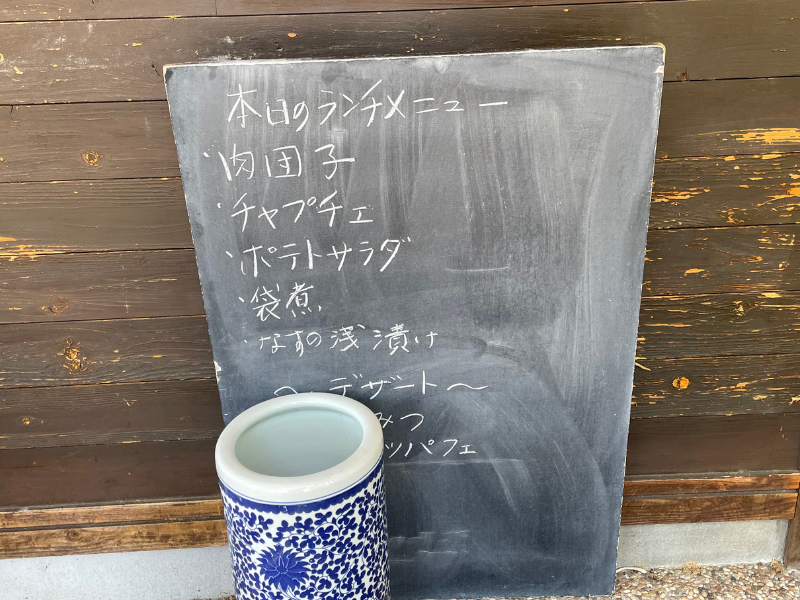 本日のランチメニュー
・肉団子
・チャプチェ
・ポテトサラダ
・袋煮
・なすの浅漬け
〜デザート〜
みつ
ツパフェ